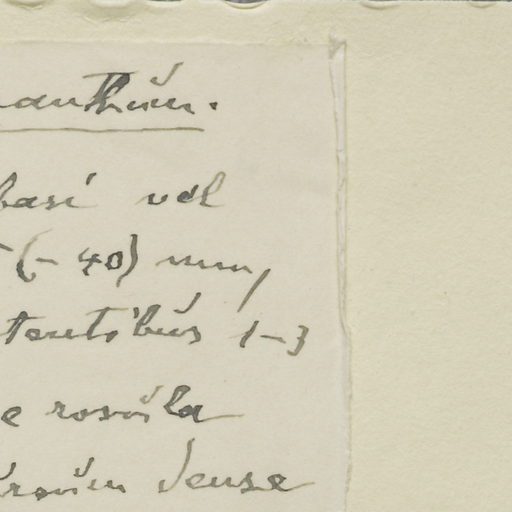 anthum.
basi vel
(-40) mm,
tentibus 1-3
e rosula
dense